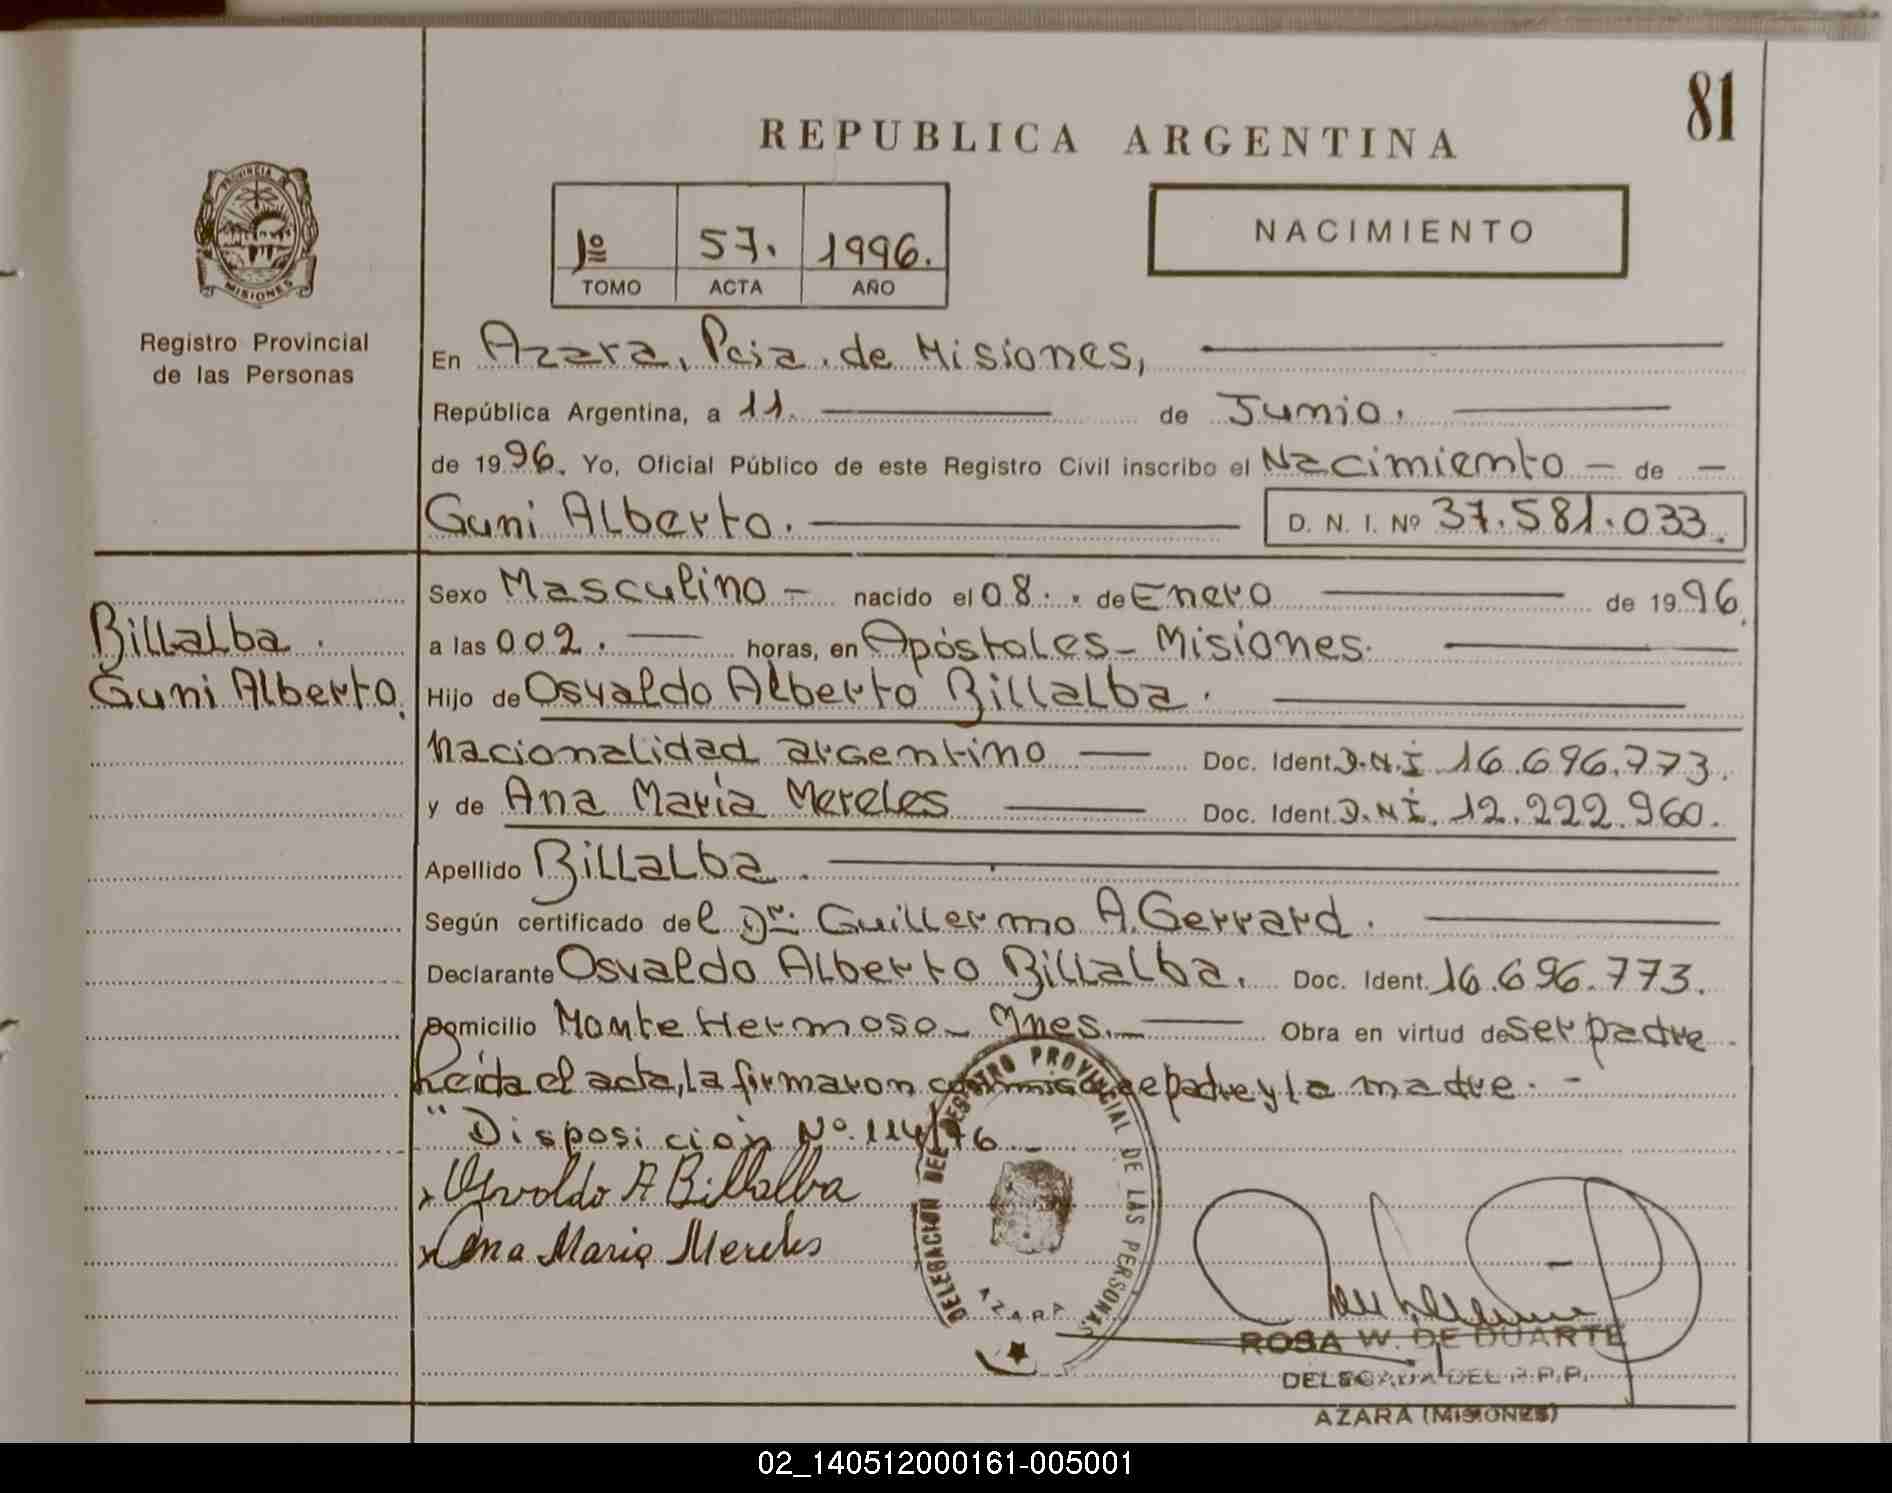 81
REPUBLICA ARGENTINA
PROVINCIA DE
MISIONES
Registro Provincial
de las Personas
1º 57. 1996.
TOMO ACTA AÑO
NACIMIENTO
En Azara, Pcia. de Misiones,
República Argentina, a 11. de Junio.
de 1996. Yo, Oficial Público de este Registro Civil inscribo el Nacimiento - de -
Guni Alberto. D. N. I. Nº 37.581.033.
Billalba.
Guni Alberto.
Sexo Masculino - nacido el 08. de Enero de 1996.
a las 002. horas, en Apóstoles - Misiones.
Hijo de Osvaldo Alberto Billalba.
Nacionalidad argentino Doc. Ident. D.N.I. 16.696.773.
y de Ana María Mereles Doc. Ident. D.N.I. 12.222.960.
Apellido Billalba.
Según certificado del Dr. Guillermo A. Gerrard.
Declarante Osvaldo Alberto Billalba. Doc. Ident. 16.696.773.
Domicilio Monte Hermoso - Mnes. Obra en virtud de ser padre
Leída el acta, la firmaron conmigo el padre y la madre. -
" Disposición Nº. 114/76
x Osvaldo A Billalba
x Ana Maria Mereles
DELEGACION DEL REGISTRO PROVINCIAL DE LAS PERSONAS
AZARA
ROSA W. DE DUARTE
DELEGADA DEL R.P.P.
AZARA (MISIONES)
02_140512000161-005001